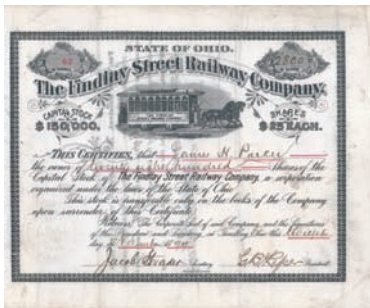 STATE OF OHIO.
62 2800
The Findlay Street Railway Company,
CAPITAL STOCK SHARES
$150,000. $25 EACH.
This Certifies, that James H. Parker
the owner of twenty eight hundred Shares of the
Capital Stock of The Findlay Street Railway Company, a corporation
organized under the laws of the State of Ohio
This stock is transferable only on the books of the Company
upon surrender of this Certificate.
Witness, The Corporate Seal of said Company, and the Signatures
of the President and Secretary, at Findlay, Ohio this
day of
Secretary President